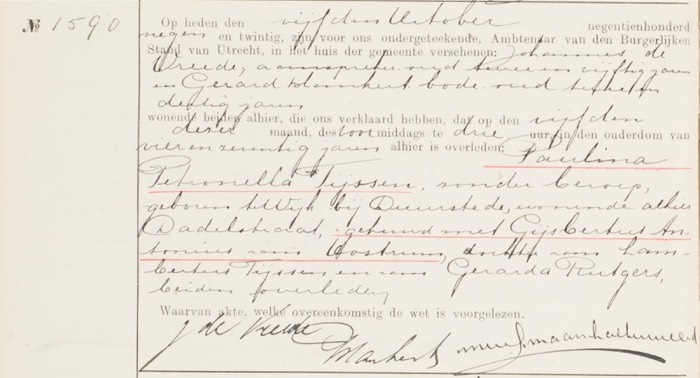 № 1590
Op heden den vijfden October negentienhonderd
negen en twintig, zijn voor ons ondergeteekende, Ambtenaar van den Burgerlijken
Stand van Utrecht, in het huis der gemeente verschenen: Johannes de
Vreede, aanspreker oud twee en vijftig jaren
en Gerard Mankert bode oud
dertig jaren
wonende beiden alhier, die ons verklaard hebben, dat op den vijfden
dezer maand, des voor middags te drie uur, in den ouderdom van
vier en zeventig jaren alhier is overleden: Paulina
Petronella Tijssen, zonder beroep,
geboren te Wijk bij Duurstede, wonende alhier
Dadelstraat, gehuwd met Gijsbertus An-
tonius van Oostrum, dochter van Lam-
bertus Tijssen en van Gerarda Rutgers,
beiden overleden
Waarvan akte, welke overeenkomstig de wet is voorgelezen.
J de Vreede